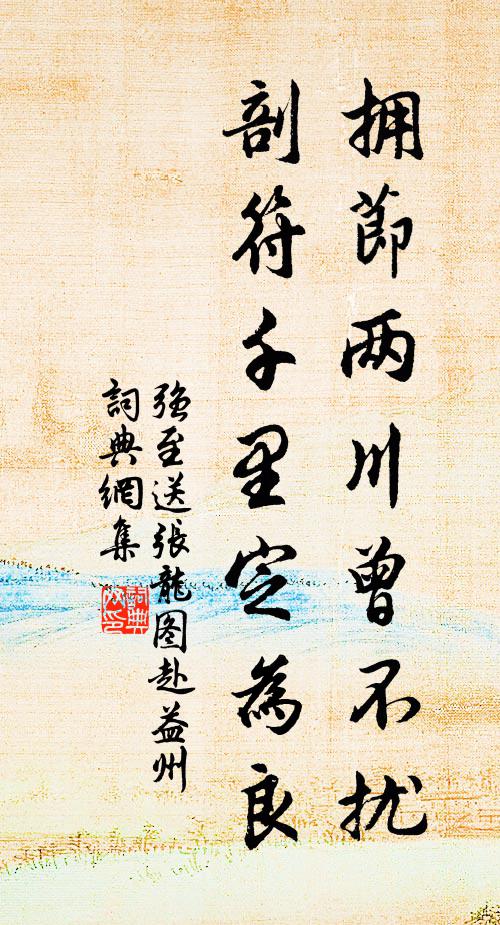 拥節两川曾不扰
剖符千里定為良
强至送張龍图赴益州
詞典網集